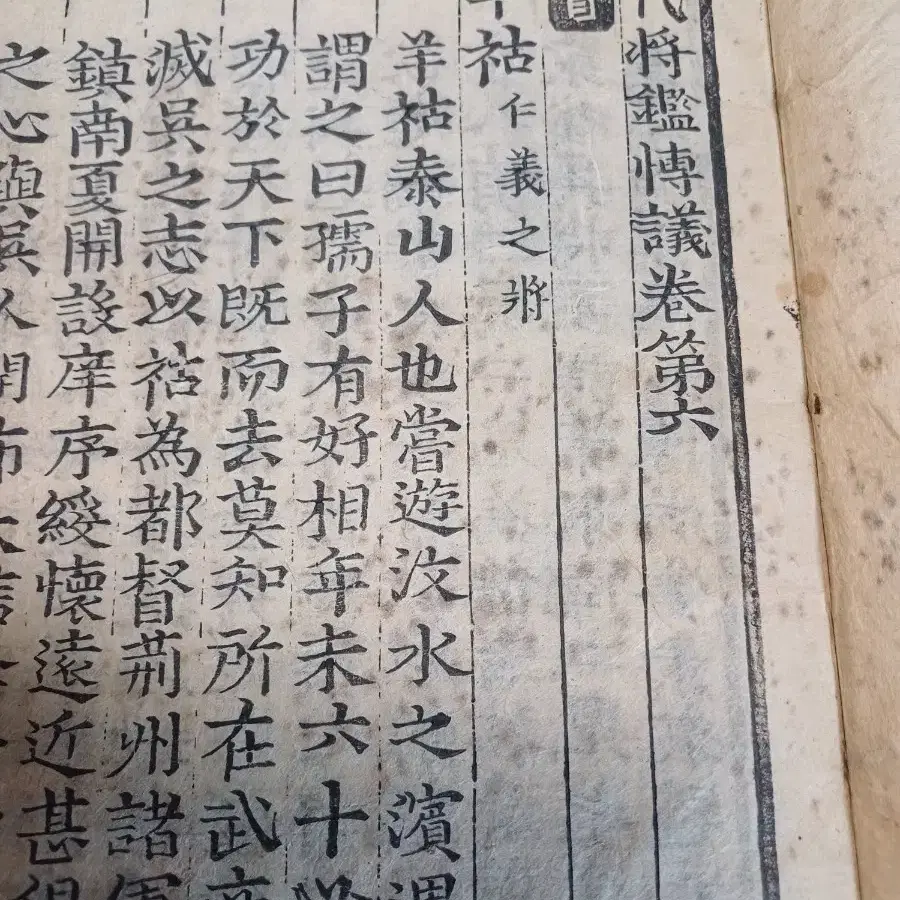 将鑑愽議卷第六
祜 仁義之將
羊祜泰山人也嘗遊汶水之濱遇
謂之曰孺子有好相年未六十必
功於天下既而去莫知所在武帝
滅吳之志以祜為都督荊州諸軍
鎮南夏開設庠序綏懷遠近甚得
之心與吳人開布大信